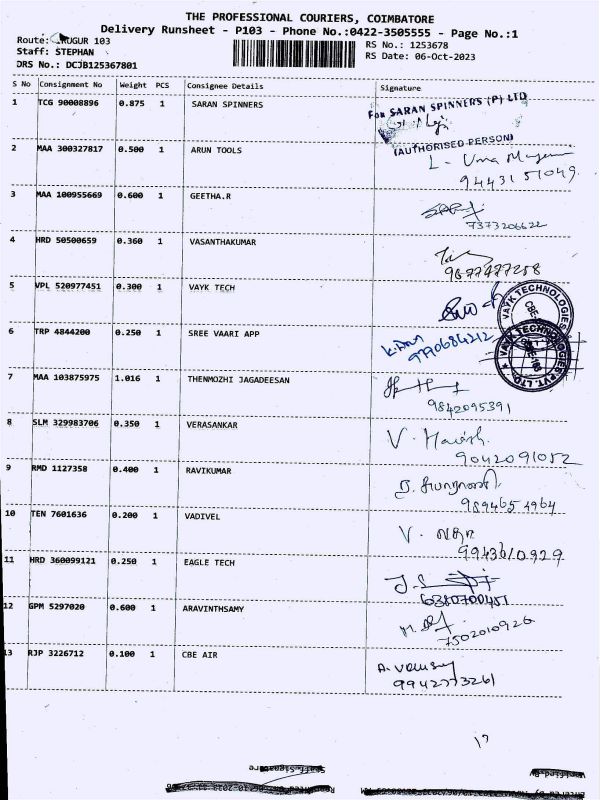 THE PROFESSIONAL COURIERS, COIMBATORE
Delivery Runsheet - P103 - Phone No.:0422-3505555 - Page No.:1
Route: RUGUR 103
RS No.: 1253678
Staff: STEPHAN
RS Date: 06-Oct-2023
DRS No.: DCJB125367801
S No Consignment No Weight PCS Consignee Details Signature
1 TCG 90008896 0.875 1 SARAN SPINNERS
For SARAN SPINNERS (P) LTD
(AUTHORISED PERSON)
2 MAA 300327817 0.500 1 ARUN TOOLS
9443151049
3 MAA 100955669 0.600 1 GEETHA.R
7373206622
4 HRD 50500659 0.360 1 VASANTHAKUMAR
9877477258
5 VPL 520977451 0.300 1 VAYK TECH
VAYK TECHNOLOGIES
6 TRP 4844200 0.250 1 SREE VAARI APP
9790684212
VAYK TECHNOLOGIES PVT. LTD.
7 MAA 103875975 1.016 1 THENMOZHI JAGADEESAN
9842095391
8 SLM 329983706 0.350 1 VERASANKAR
V. Harish.
9042091052
9 RMD 1127358 0.400 1 RAVIKUMAR
9894654964
10 TEN 7601636 0.200 1 VADIVEL
9943610929
11 HRD 360099121 0.250 1 EAGLE TECH
6380700451
12 GPM 5297020 0.600 1 ARAVINTHSAMY
7502010926
13 RJP 3226712 0.100 1 CBE AIR
9942773261
Staff Signature
Verified By